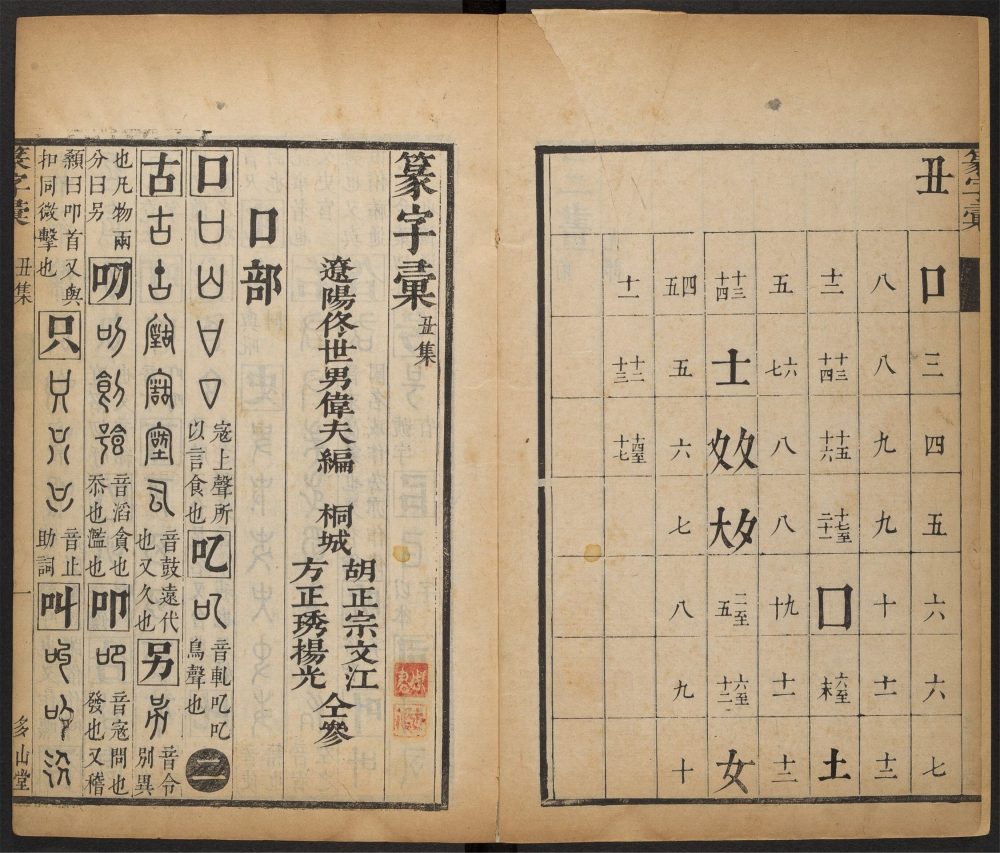 篆字彙
丑 口 三 四 五 六 六 七
八 八 九 九 十 十一 十二
十二 十三十四 十五十六 十七至二十一 囗 六至末 土
五 六七 八 八 九十 十一 十二
十三十四 士 夂夊 夕大 二至五 六至十二 女
四五 五 六 七 八 九 十
十一 十二十三 十四至十七
篆字彙 丑集
遼陽佟世男偉夫編 桐城
胡正宗文江
方正琇揚光
仝參
口部
口 寇上聲所以言食也 𠮙 音軋𠮙𠮙鳥聲也 二
古 音鼓遠代也又久也 另 音令別異
也凡物兩分曰另 叨 音滔貪也忝也濫也 叩 音寇問也發也又稽
顙曰叩首又與扣同微擊也 只 音止助詞 叫
篆字彙 丑集 一 多山堂